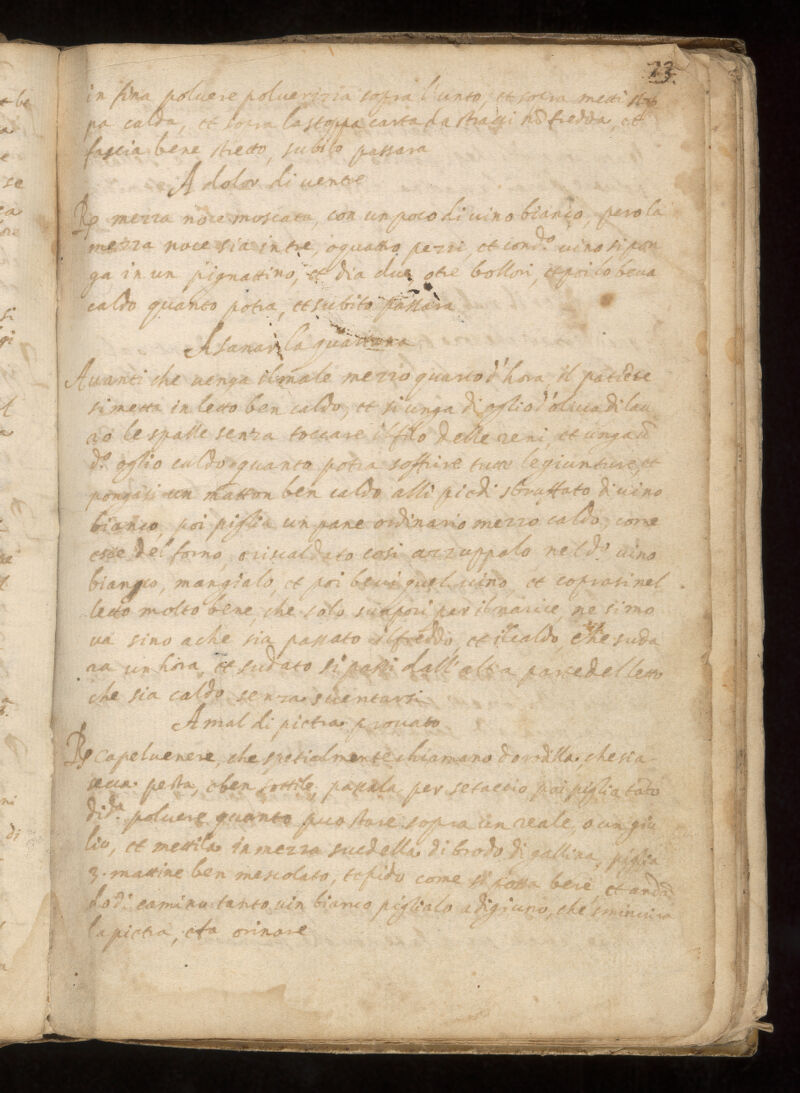 23.
in fina poluere poluerizia sopra l'unto, et sopra metti stop
pa calda, et sopra la stoppa carta da strazzi nõ fredda, et
fascia bene stretto, subito passara
A dolor di ventre
R. mezza noce moscata, con un poco di vino bianco, pero la
mezza noce sia in tre, o quatro pezzi, et con d.º vino si pon
ga in un pignattino, et dia due o tre bollori, et poi lo beva
caldo quanto potra, et subito passara
A sanar la quartana
Avanti che venga il male mezzo quarto d'hora il patiẽte
si metta in letto ben caldo, et si unga di oglio d'oliva di lau
ro le spalle senza toccare il filo delle reni, et ungasi
d.º oglio caldo quanto potra soffrire tutte le giunture, et
pongasi un matton ben caldo alli piedi sbruffato di vino
bianco, poi piglia un pane ordinario mezzo caldo, come
esce del forno, o riscaldato così azzuppalo nel d.º vino
bianco, mangialo, et poi bevi quel vino, et coprasi nel
letto molto bene, che solo svapori per il narice, ne si mo
va sino a che sia passato il freddo, et il caldo, che suda
ra un hora, et sudato si passi dall'altra parte del letto
che sia caldo senza sventarsi
A mal di pietra provato
R. Capelvenere, che spetialmente chiamano doradilla, che sia
secca pesta, e ben sottile, passala per setaccio, poi piglia tãto
di d.ª poluere quanto puo stare sopra un reale, o un giu
lio, et mettila in mezza scudella di brodo di gallina, piglia
3. mattine ben mescolato, tepido come si possa bere et
camina tanto vin bianco piglialo a digiuno, che sminuira
la pietra, e fa orinare